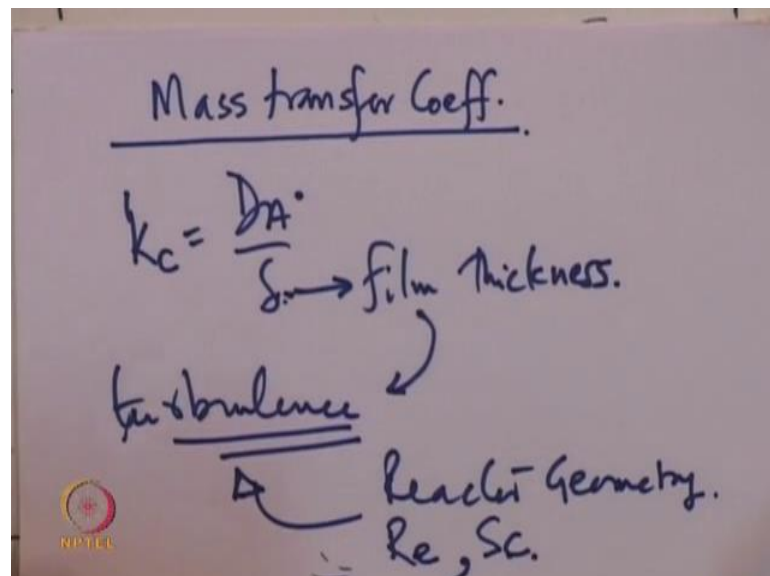 Mass transfer Coeff.
kc = DA
δ → film thickness.
turbulence
Reactor Geometry.
Re, Sc.
NPTEL